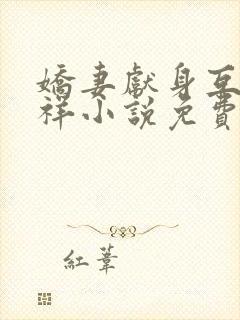 嬌妻獻身互
祥小說免費
紅葦